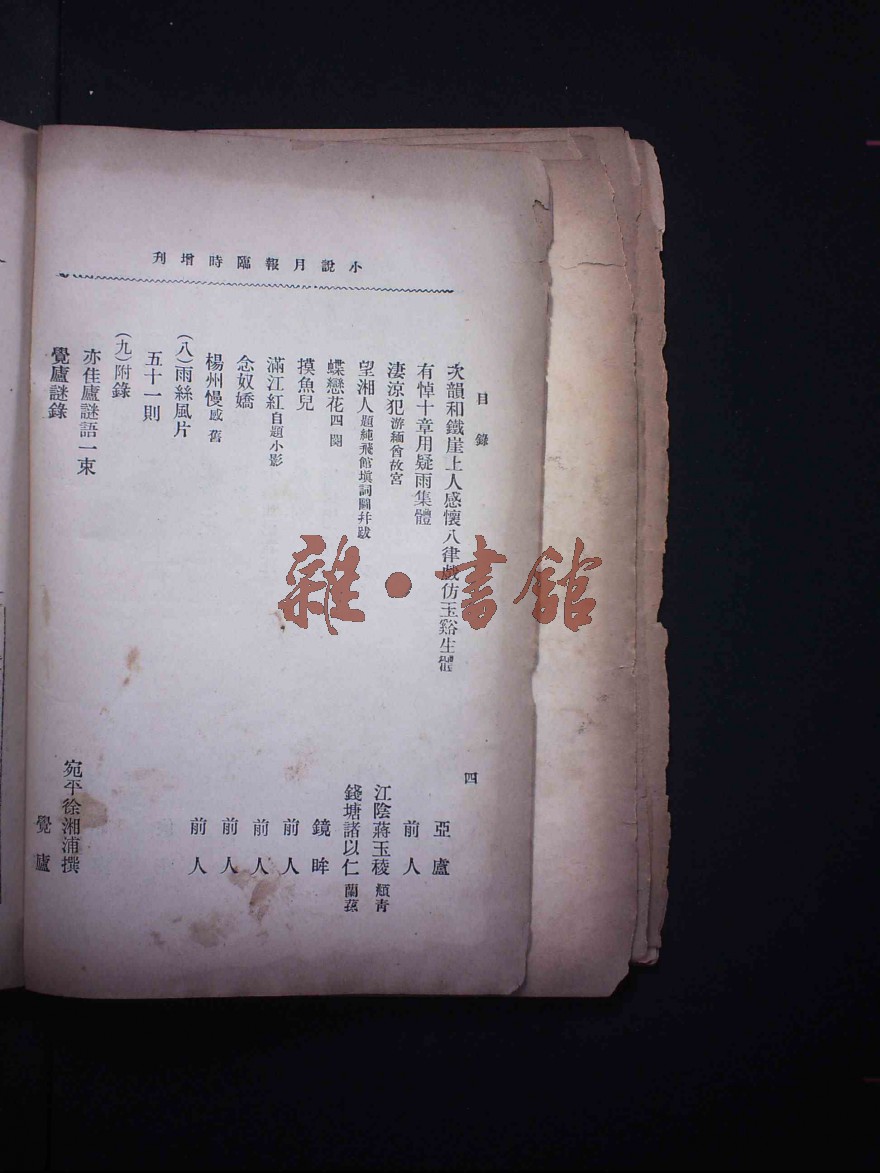 小說月報臨時增刊
目錄 四
次韻和鐵崖上人感懷八律戲仿玉谿生體 亞盧
有悼十章用疑雨集體 前人
淒涼犯游緬酋故宮 江陰蔣玉稜頩青
望湘人題純飛館塡詞圖幷跋 錢塘諸以仁蘭蓀
蝶戀花四闋 鏡眸
摸魚兒 前人
滿江紅自題小影 前人
念奴嬌 前人
楊州慢感舊 前人
(八)雨絲風片
五十一則
(九)附錄
亦佳廬謎語一束 宛平徐湘浦撰
覺廬謎錄 覺廬
雜·書館